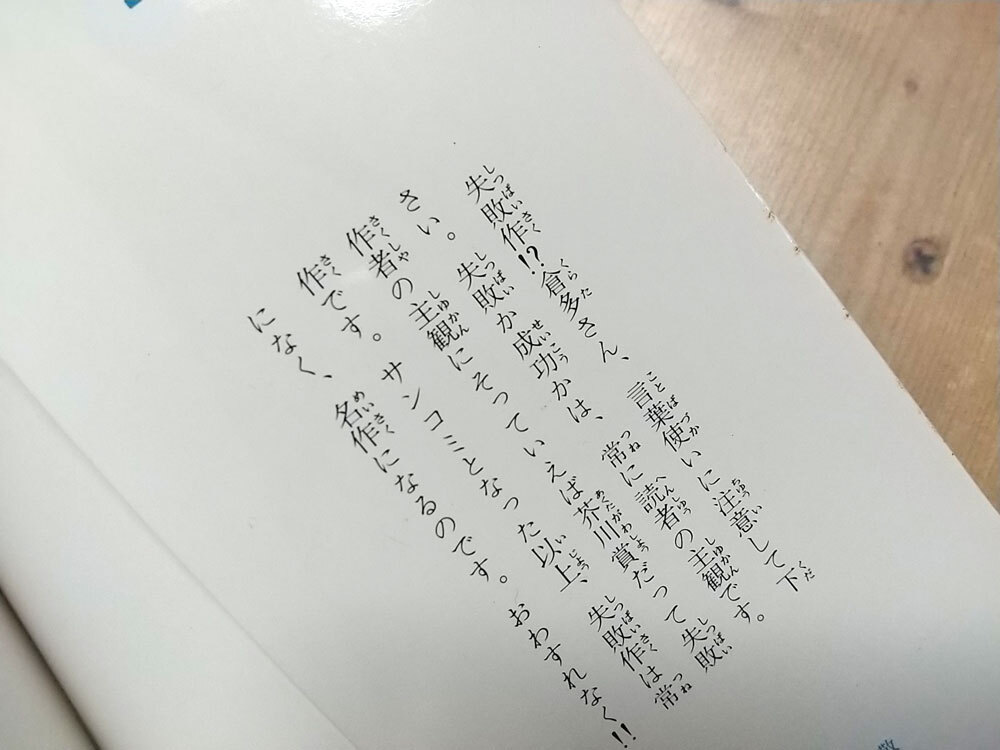 失敗作!?倉多さん、言葉使いに注意して下
さい。失敗か成功かは、常に読者の主観です。
作者の主観にそっていえば芥川賞だって失敗
作です。サンコミとなった以上、失敗作は常
になく、名作になるのです。おわすれなく!!